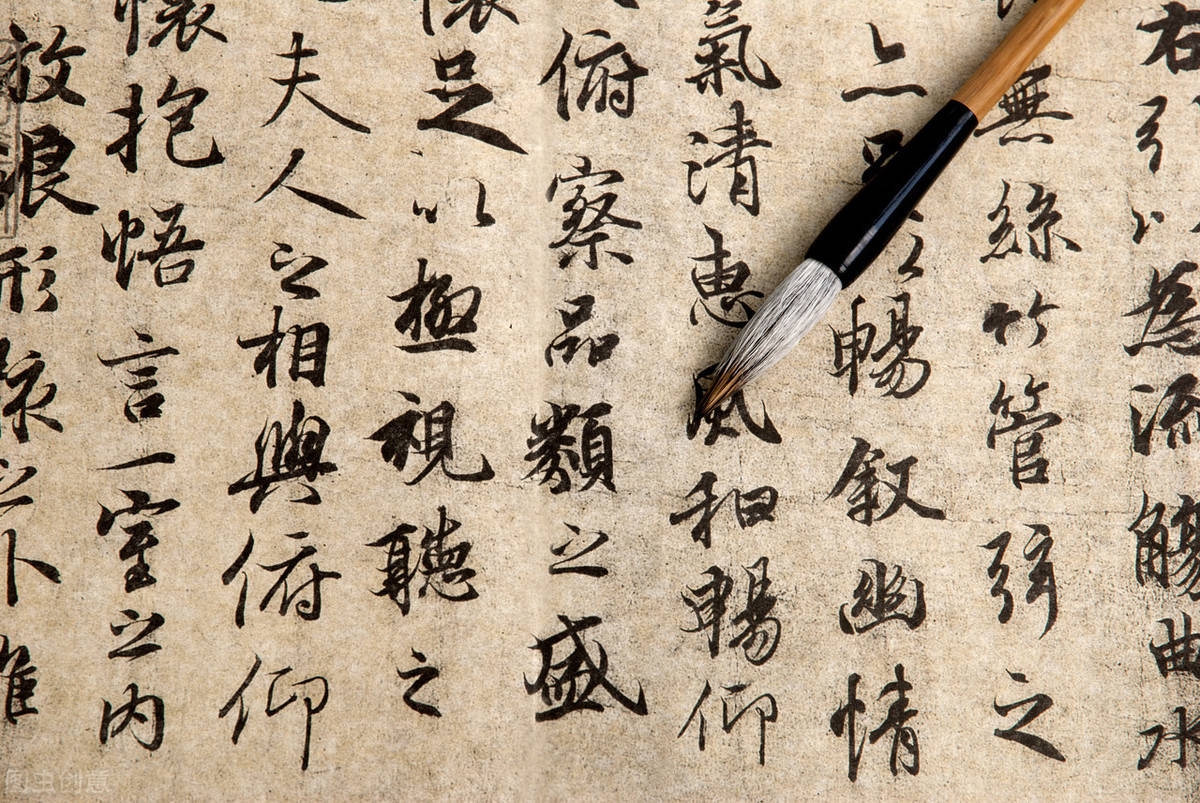 右引以為流觴曲水
無絲竹管弦之
亦足以暢叙幽情
氣清惠風和暢仰
俯察品類之盛
懷足以極視聽之
夫人之相與俯仰
懷抱悟言一室之內
放浪形骸之外雖
图虫创意